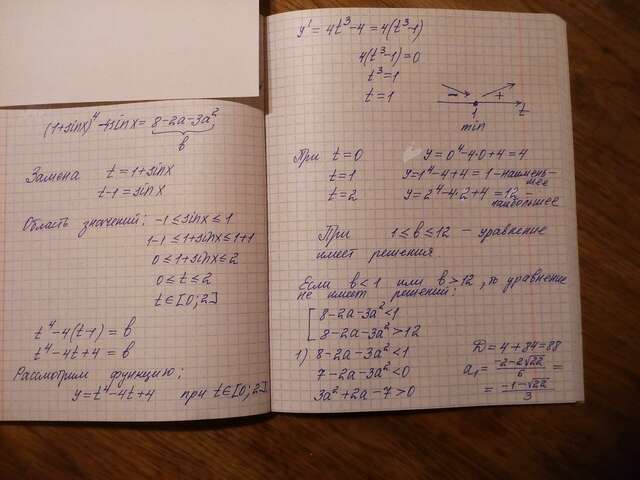 (1+sinx)⁴-4sinx = 8-2a-3a²
b
Замена t=1+sinx
t-1=sinx
Область значений: -1≤sinx≤1
1-1≤1+sinx≤1+1
0≤1+sinx≤2
0≤t≤2
t∈[0;2]
t⁴-4(t-1)=b
t⁴-4t+4=b
Рассмотрим функцию:
y=t⁴-4t+4 при t∈[0;2]
y'=4t³-4=4(t³-1)
4(t³-1)=0
t³=1
t=1
- +
1 t
min
При t=0 y=0⁴-4·0+4=4
t=1 y=1⁴-4+4=1-наимень-
шее
t=2 y=2⁴-4·2+4=12-
наибольшее
При 1≤b≤12 - уравнение
имеет решения.
Если b<1 или b>12, то уравнение
не имеет решений:
[8-2a-3a²<1
8-2a-3a²>12
1) 8-2a-3a²<1
7-2a-3a²<0
3a²+2a-7>0
D=4+84=88
a₁=(-2-2√22)/6=
=(-1-√22)/3